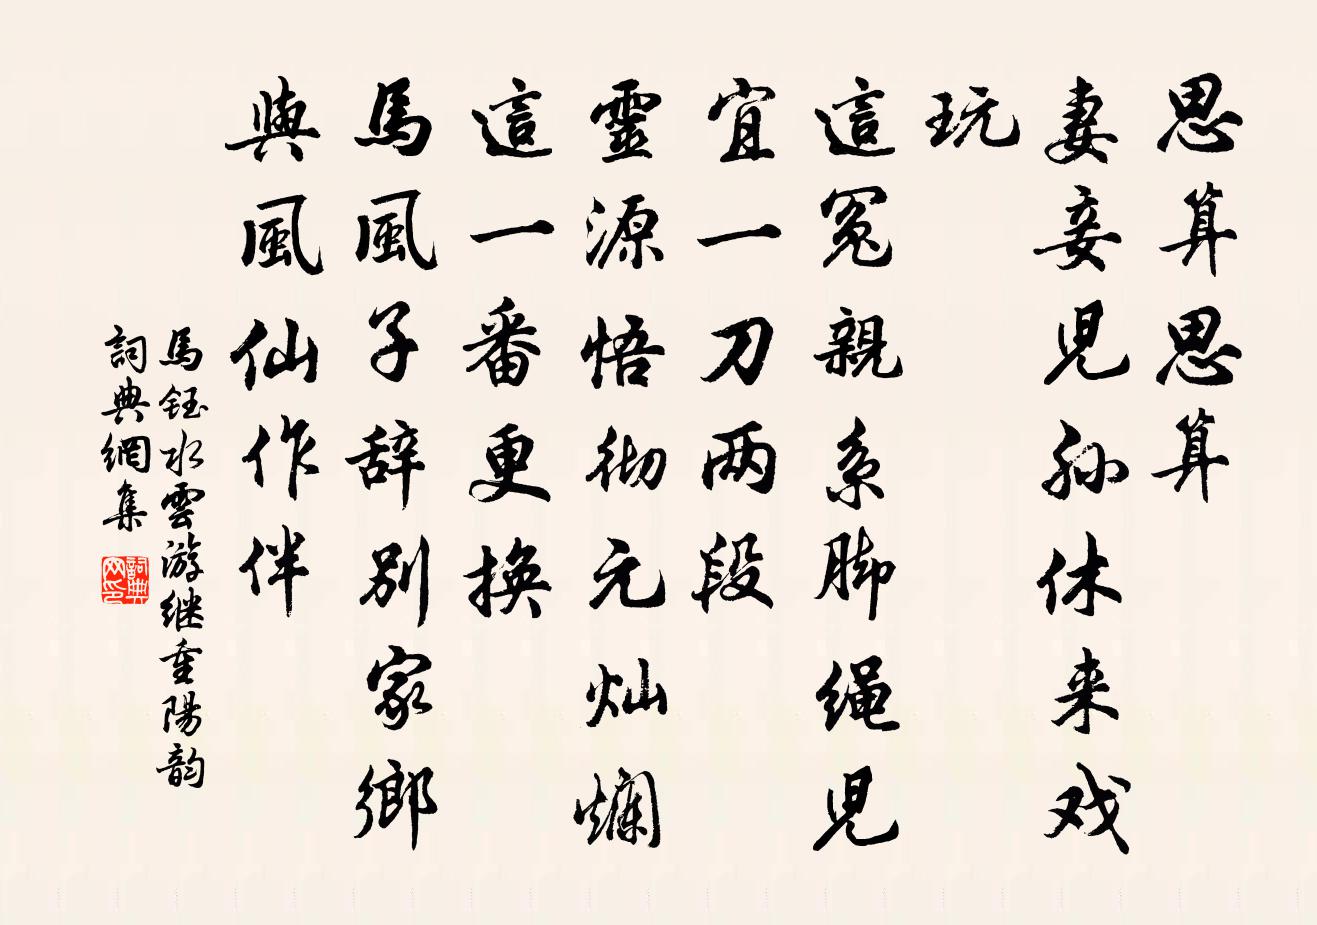 思算思算
妻妾児孙休来戏
玩
這冤親系脚绳児
宜一刀两段
靈源悟彻元灿爛
這一番更换
馬風子辞别家鄉
與風仙作伴
馬鈺水雲游继重陽韵
詞典網集
詞典网印